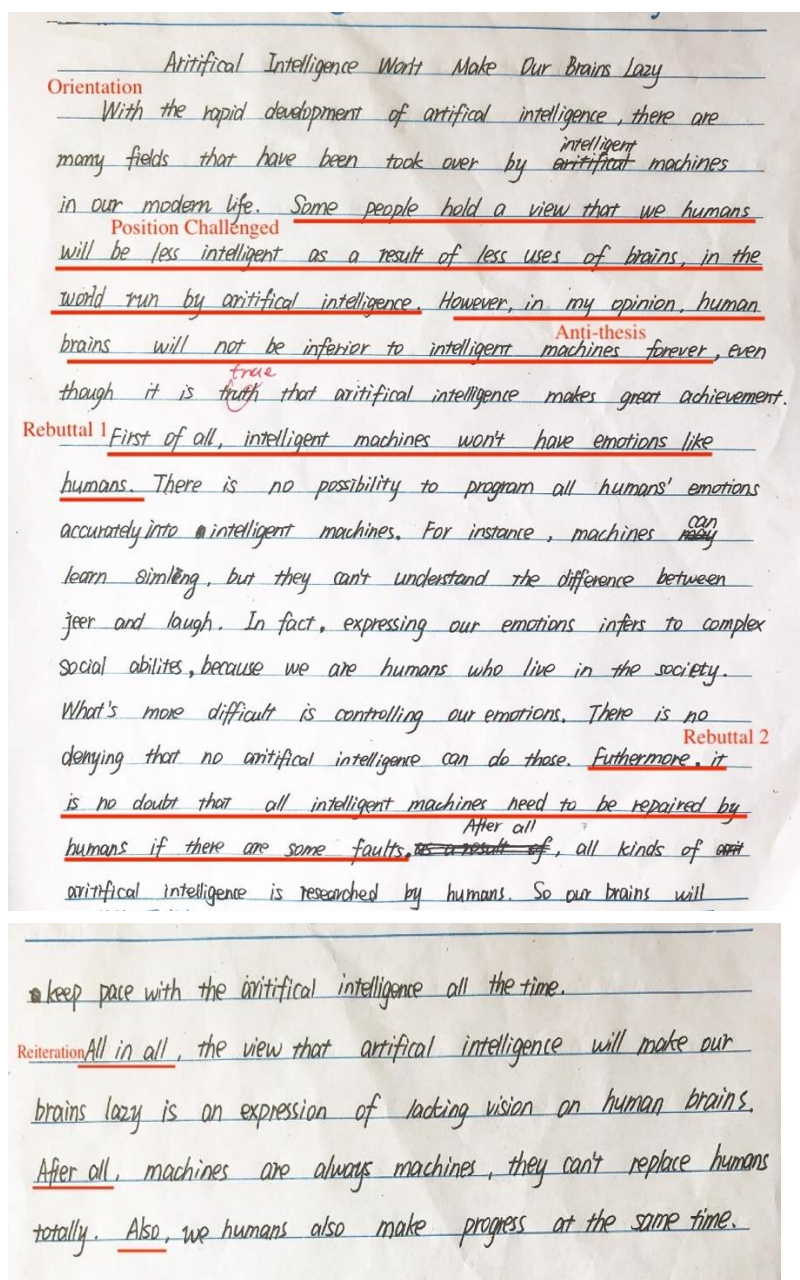 Aritifical Intelligence Won't Make Our Brains Lazy
Orientation
With the rapid development of artifical intelligence, there are
intelligent
many fields that have been took over by aritifical machines
in our modern life. Some people hold a view that we humans
Position Challenged
will be less intelligent as a result of less uses of brains, in the
world run by aritifical intelligence. However, in my opinion, human
Anti-thesis
brains will not be inferior to intelligent machines forever, even
true
though it is truth that aritifical intelligence makes great achievement.
Rebuttal 1 First of all, intelligent machines won't have emotions like
humans. There is no possibility to program all humans' emotions
accurately into intelligent machines. For instance, machines can
learn simling, but they can't understand the difference between
jeer and laugh. In fact, expressing our emotions infers to complex
social abilites, because we are humans who live in the society.
What's more difficult is controlling our emotions. There is no
Rebuttal 2
denying that no aritifical intelligence can do those. Futhermore, it
is no doubt that all intelligent machines need to be repaired by
After all
humans if there are some faults. as a result of, all kinds of arit
aritifical intelligence is researched by humans. So our brains will
keep pace with the aritifical intelligence all the time.
Reiteration All in all, the view that artifical intelligence will make our
brains lazy is an expression of lacking vision on human brains.
After all, machines are always machines, they can't replace humans
totally. Also, we humans also make progress at the same time.